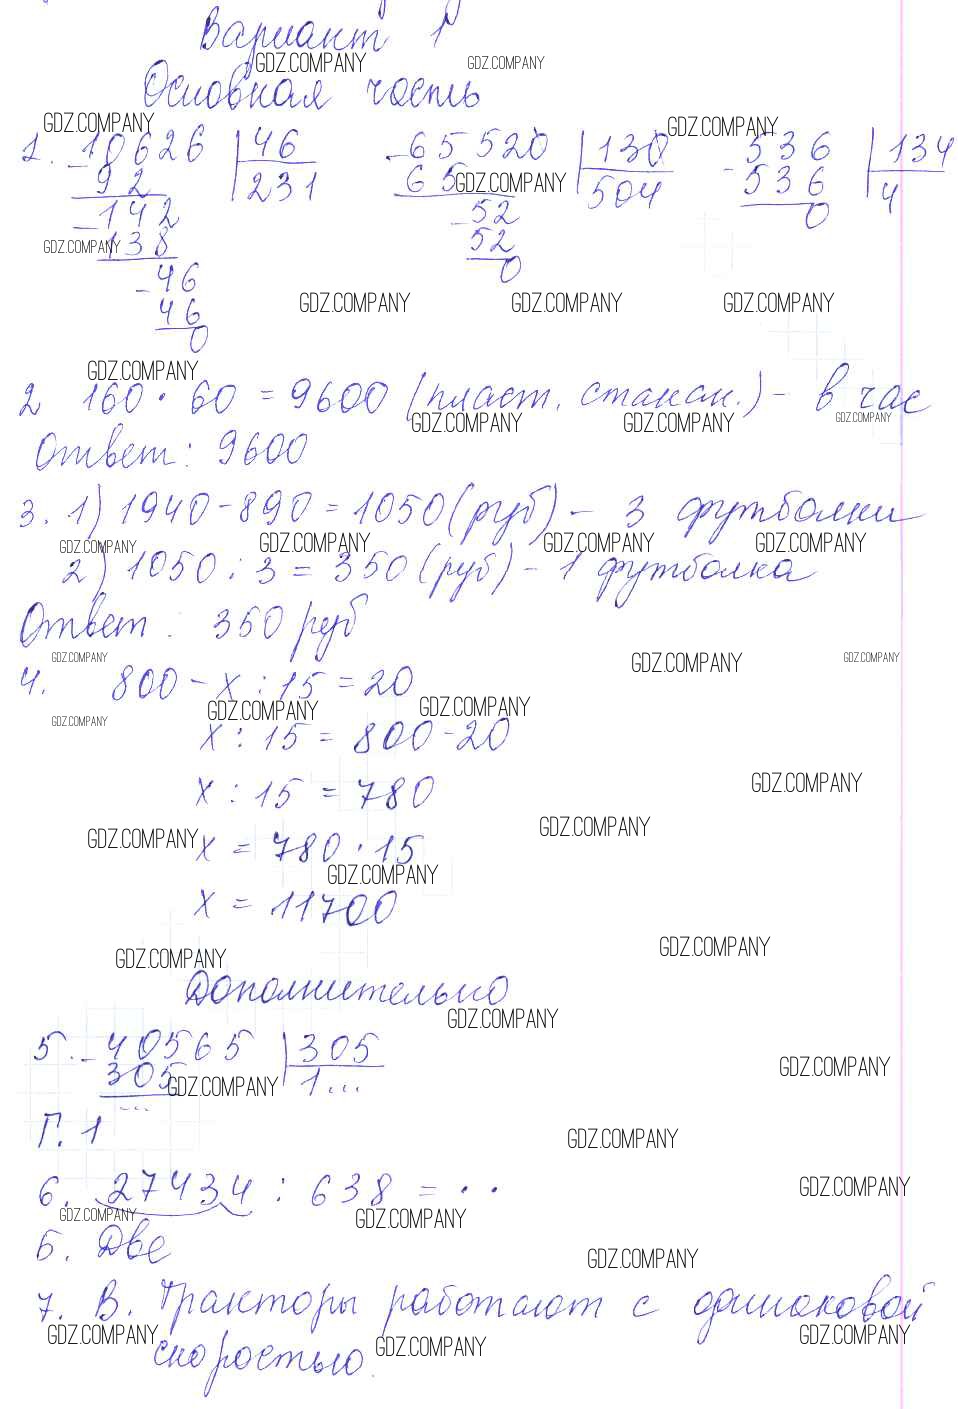 Вариант 1
GDZ.COMPANY GDZ.COMPANY
Основная часть
GDZ.COMPANY GDZ.COMPANY
1. 10626 | 46 65520 | 130 536 | 134
92 231 65 504 536 4
GDZ.COMPANY
142 52 0
138 52
GDZ.COMPANY
46 0
46
GDZ.COMPANY GDZ.COMPANY GDZ.COMPANY
0
GDZ.COMPANY
2 160 · 60 = 9600 (пласт. стакан.) - в час
GDZ.COMPANY GDZ.COMPANY GDZ.COMPANY
Ответ: 9600
3. 1) 1940 - 890 = 1050 (руб) - 3 футболки
GDZ.COMPANY GDZ.COMPANY GDZ.COMPANY GDZ.COMPANY
2) 1050 : 3 = 350 (руб) - 1 футболка
Ответ: 350 руб
GDZ.COMPANY GDZ.COMPANY GDZ.COMPANY
4. 800 - x : 15 = 20
GDZ.COMPANY GDZ.COMPANY GDZ.COMPANY
x : 15 = 800 - 20
x : 15 = 780
GDZ.COMPANY
GDZ.COMPANY GDZ.COMPANY
x = 780 · 15
GDZ.COMPANY
x = 11700
GDZ.COMPANY GDZ.COMPANY
Дополнительно
GDZ.COMPANY
5. - 40565 | 305
305 1...
GDZ.COMPANY GDZ.COMPANY
...
Г. 1
GDZ.COMPANY
6. 27434 : 638 = · ·
GDZ.COMPANY
GDZ.COMPANY GDZ.COMPANY
Б. Две
GDZ.COMPANY
7. В. Тракторы работают с одинаковой
GDZ.COMPANY GDZ.COMPANY GDZ.COMPANY
скоростью.